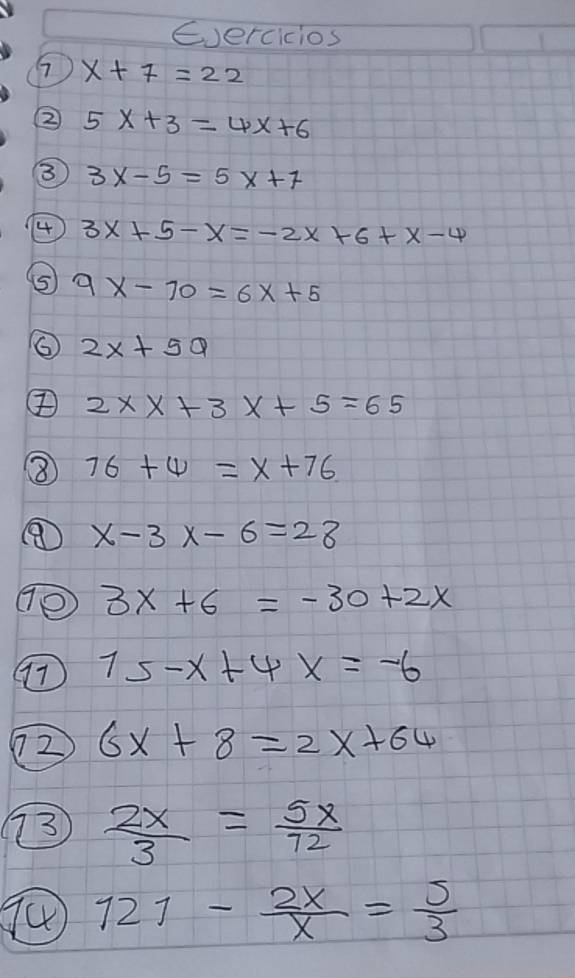 Ejercicios
① x + 7 = 22
② 5x + 3 = 4x + 6
③ 3x - 5 = 5x + 7
④ 3x + 5 - x = -2x + 6 + x - 4
⑤ 9x - 10 = 6x + 5
⑥ 2x + 59
⑦ 2xx + 3x + 5 = 65
⑧ 16 + 4 = x + 16
⑨ x - 3x - 6 = 28
⑩ 3x + 6 = -30 + 2x
⑪ 15 - x + 4x = -6
⑫ 6x + 8 = 2x + 64
⑬ 2x/3 = 5x/12
⑭ 121 - 2x/x = 5/3